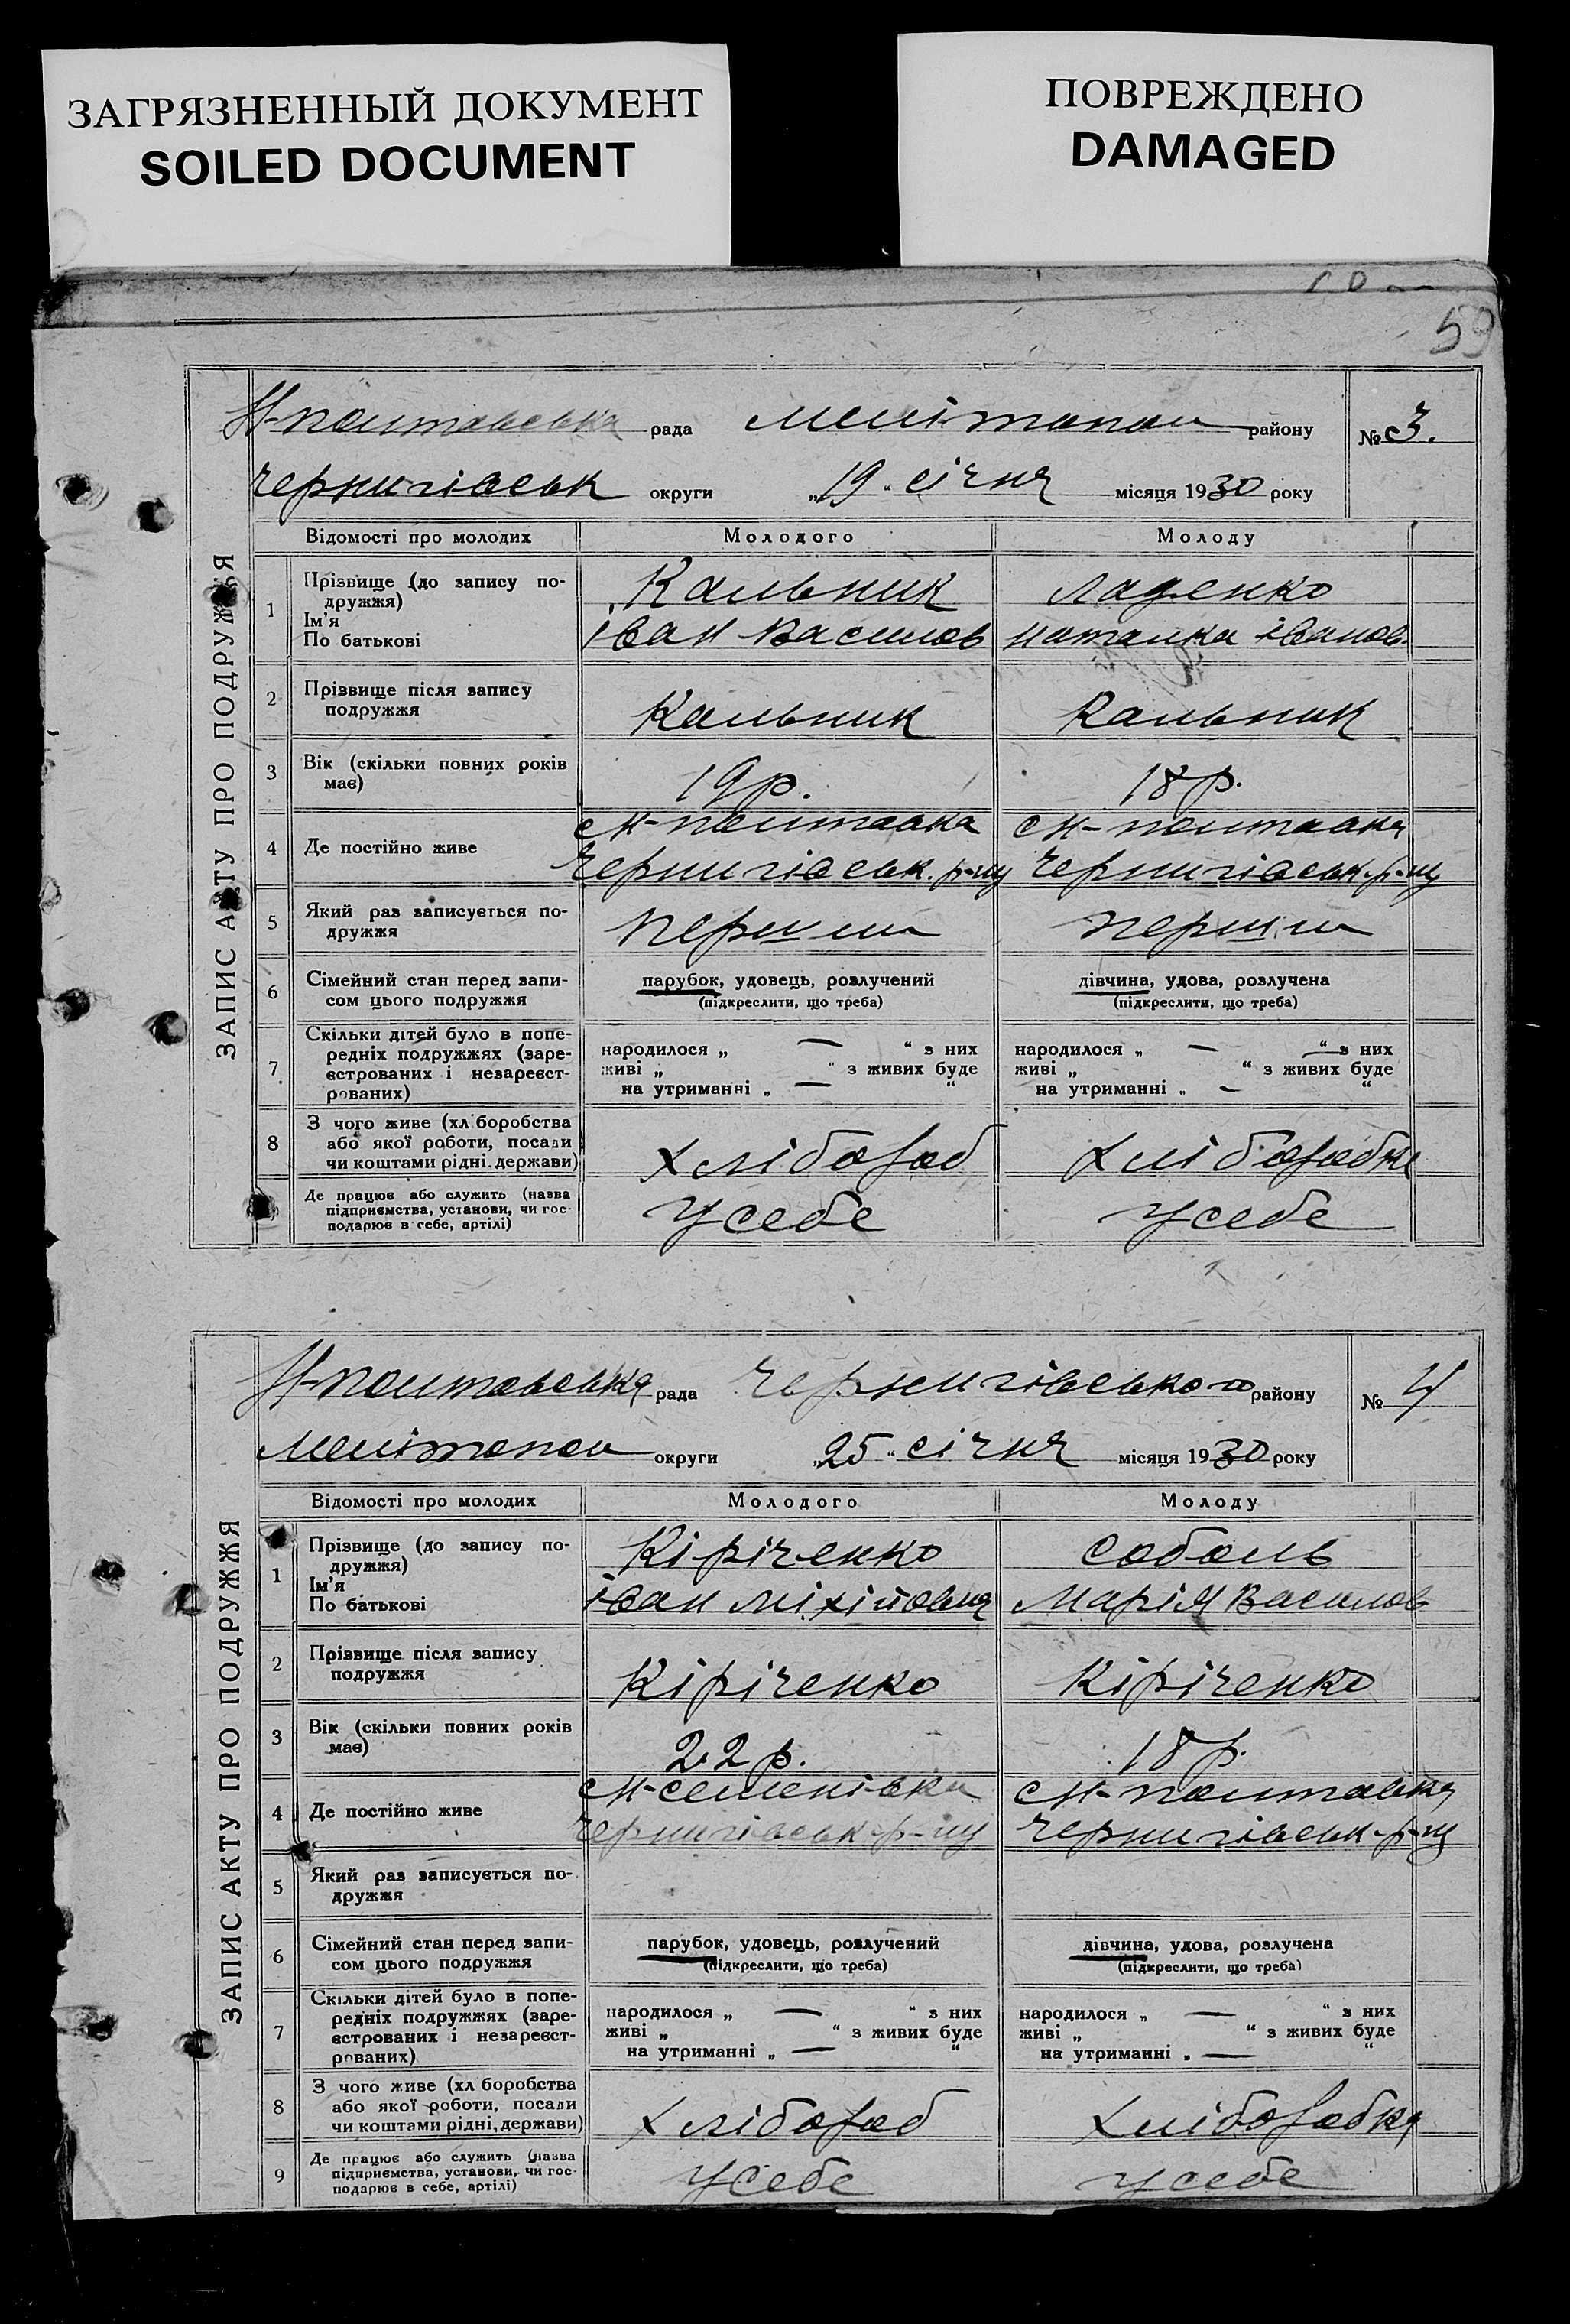 ЗАГРЯЗНЕННЫЙ ДОКУМЕНТ
SOILED DOCUMENT
ПОВРЕЖДЕНО
DAMAGED
59
ЗАПИС АКТУ ПРО ПОДРУЖЖЯ
Н-полтавська рада Мелітопол району № 3.
Чернигівськ округи „19“ січня місяця 1930 року
Відомості про молодих Молодого Молоду
1 Прізвище (до запису по-
дружжя)
Ім'я
По батькові
Кальник Ладенко
іван Василов наталка івановн
2 Прізвище після запису
подружжя
Кальник Кальник
3 Вік (скільки повних років
має)
19 р. 18 р.
4 Де постійно живе
с Н-полтавка с Н-полтавка
Чернигівськ. р-ну Чернигівськ. р-ну
5 Який раз записується по-
дружжя
перший перший
6 Сімейний стан перед запи-
сом цього подружжя
парубок, удовець, розлучений
(підкреслити, що треба)
дівчина, удова, розлучена
(підкреслити, що треба)
7 Скільки дітей було в попе-
редніх подружжях (заре-
єстрованих і незареєст-
рованих)
народилося „ — “ з них
живі „ “ з живих буде
на утриманні „ — “
народилося „ — “ з них
живі „ “ з живих буде
на утриманні „ — “
8 З чого живе (хліборобства
або якої роботи, посади
чи коштами рідні, держави)
хлібороб хліборобка
Де працює або служить (назва
підприємства, установи, чи гос-
подарює в себе, артілі)
у себе у себе
ЗАПИС АКТУ ПРО ПОДРУЖЖЯ
Н-полтавська рада Чернигівського району № 4
Мелітопол округи „25“ січня місяця 1930 року
Відомості про молодих Молодого Молоду
1 Прізвище (до запису по-
дружжя)
Ім'я
По батькові
Кіріченко Соболь
іван Марія Василов
2 Прізвище після запису
подружжя
Кіріченко Кіріченко
3 Вік (скільки повних років
має)
22 р. 18 р.
4 Де постійно живе
с Н-семенівка с Н-полтавка
Чернигівськ р-ну Чернигівськ р-ну
5 Який раз записується по-
дружжя
6 Сімейний стан перед запи-
сом цього подружжя
парубок, удовець, розлучений
(підкреслити, що треба)
дівчина, удова, розлучена
(підкреслити, що треба)
7 Скільки дітей було в попе-
редніх подружжях (заре-
єстрованих і незареєст-
рованих)
народилося „ — “ з них
живі „ “ з живих буде
на утриманні „ — “
народилося „ — “ з них
живі „ “ з живих буде
на утриманні „ — “
8 З чого живе (хліборобства
або якої роботи, посади
чи коштами рідні, держави)
хлібороб хліборобка
9 Де працює або служить (назва
підприємства, установи, чи гос-
подарює в себе, артілі)
у себе у себе